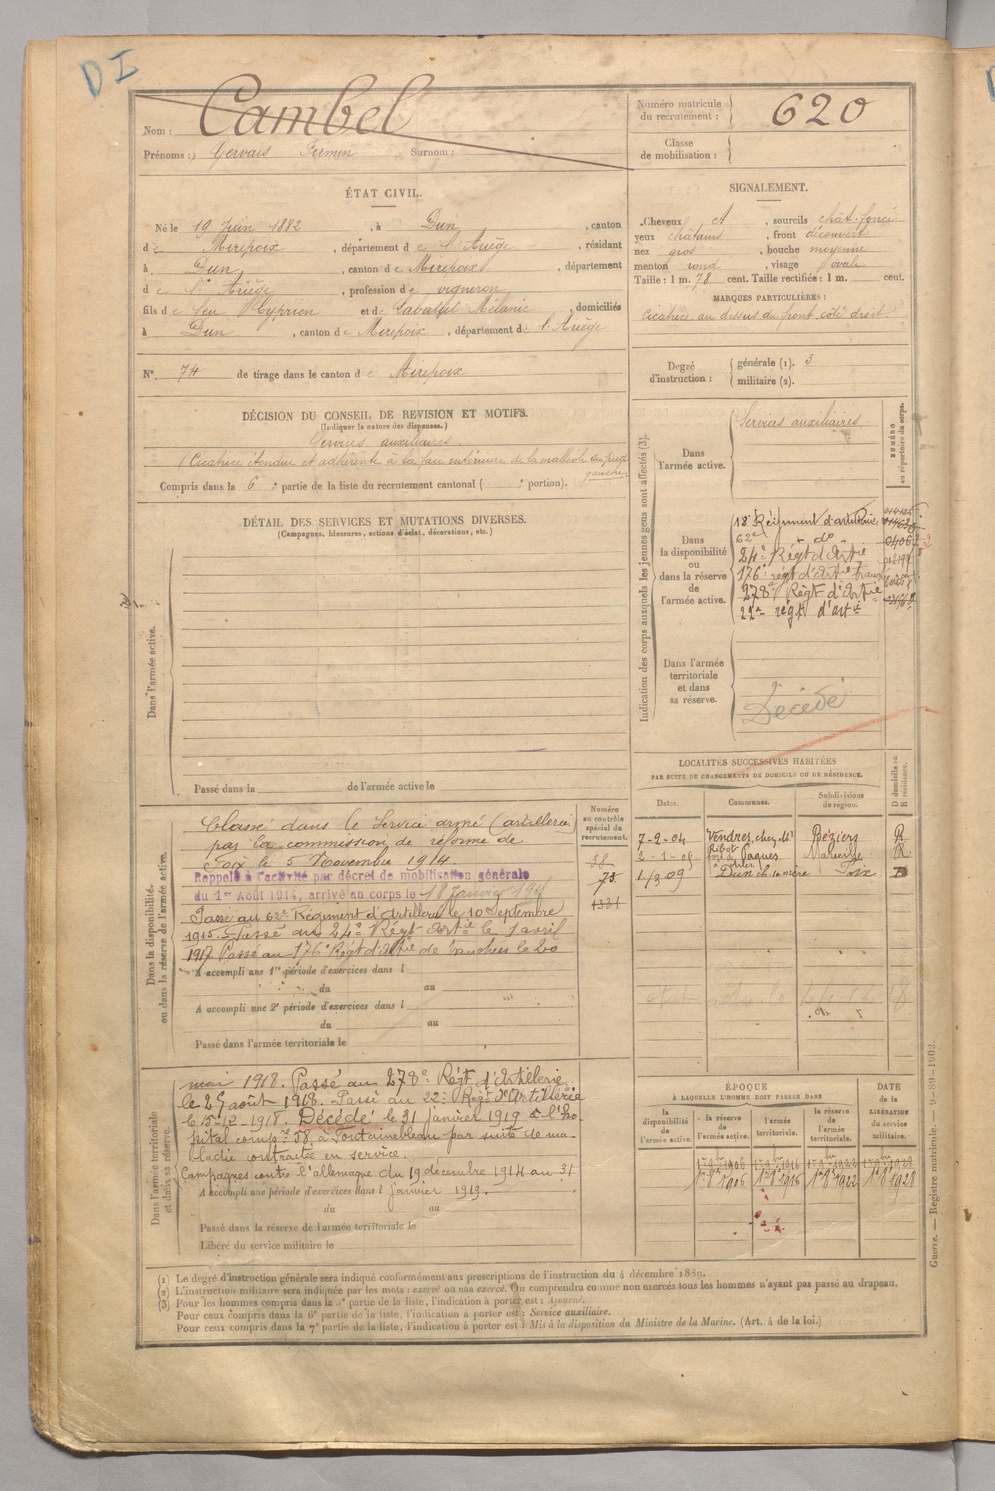 DI
Nom : Cambel
Prénoms : Gervais Firmin Surnom :
Numéro matricule du recrutement : 620
Classe de mobilisation :
ÉTAT CIVIL.
Né le 19 Juin 1882, à Dun, canton
de Mirepoix, département de l'Ariège, résidant
à Dun, canton de Mirepoix, département
de l'Ariège, profession de vigneron
fils de feu Cyprien et de Mélanie, domiciliés
à Dun, canton de Mirepoix, département de l'Ariège
N° 74 de tirage dans le canton de Mirepoix
SIGNALEMENT.
Cheveux ct, sourcils chât. foncé
yeux châtains, front découvert
nez gros, bouche moyenne
menton rond, visage ovale
Taille : 1 m. 78 cent. Taille rectifiée : 1 m. cent.
MARQUES PARTICULIÈRES :
Cicatrice au dessus du front, côté droit
Degré d'instruction : générale (1). 3
militaire (2).
DÉCISION DU CONSEIL DE REVISION ET MOTIFS.
(Indiquer la nature des dispenses.)
Services auxiliaires.
Cicatrice étendue et adhérente à la face antérieure de la malléole du pied gauche
Compris dans la 6e partie de la liste du recrutement cantonal ( e portion).
DÉTAIL DES SERVICES ET MUTATIONS DIVERSES.
(Campagnes, blessures, actions d'éclat, décorations, etc.)
Dans l'armée active.
Passé dans la de l'armée active le
Indication des corps auxquels les jeunes gens sont affectés (3).
NUMÉRO au répertoire du corps.
Dans l'armée active.
Services auxiliaires
Dans la disponibilité ou dans la réserve de l'armée active.
18e Régiment d'artillerie
62e - do -
24e Régt d'Artie
176e régt d'Artie tranchées
278e Régt d'Artie
22e régt d'artie
Dans l'armée territoriale et dans sa réserve.
Décédé
LOCALITÉS SUCCESSIVES HABITÉES
PAR SUITE DE CHANGEMENTS DE DOMICILE OU DE RÉSIDENCE.
Dates. Communes. Subdivisions de région. D domicile ou R résidence.
7-2-04 Vendres, chez Mr Ribot Béziers R
2-1-08 Marseille R
1/3 09 Dun Foix D
Dans la disponibilité ou dans la réserve de l'armée active.
Numéro au contrôle spécial du recrutement.
Classé dans le Service armé (artillerie)
par la commission de réforme de
Foix le 5 Novembre 1914.
Rappelé à l'activité par décret de mobilisation générale
du 1er Août 1914, arrivé au corps le 18 Janvier
Passé au 62e Régiment d'Artillerie le 10 Septembre
1915. Passé au 24e Régt d'Artie le 1 avril
1917. Passé au 176e Régt d'Artie de tranchées le 20
A accompli une 1re période d'exercices dans l
du au
A accompli une 2e période d'exercices dans l
du au
Passé dans l'armée territoriale le
Dans l'armée territoriale et dans sa réserve.
mai 1918. Passé au 278e Régt d'Artillerie
le 25 août 1918. Passé au 22e Régt d'Artillerie
le 15-12-1918. Décédé le 31 janvier 1919 à l'hô-
pital compre 58, à Fontainebleau par suite de ma-
ladie contractée en service.
Campagnes contre l'allemagne du 19 décembre 1914 au 31
A accompli une période d'exercices dans l janvier 1919.
du au
Passé dans la réserve de l'armée territoriale le
Libéré du service militaire le
ÉPOQUE
À LAQUELLE L'HOMME DOIT PASSER DANS
la disponibilité de l'armée active. la réserve de l'armée active. l'armée territoriale. la réserve de l'armée territoriale.
DATE de la LIBÉRATION du service militaire.
1er 9bre 1906 1er 9bre 1916 1er 9bre 1922 1er 9bre 1928
1er 8bre 1906 1er 8bre 1916 1er 8bre 1922 1er 8bre 1928
(1) Le degré d'instruction générale sera indiqué conformément aux prescriptions de l'instruction du 4 décembre 1889.
(2) L'instruction militaire sera indiquée par les mots : exercé ou non exercé. On comprendra comme non exercés tous les hommes n'ayant pas passé au drapeau.
(3) Pour les hommes compris dans la 5e partie de la liste, l'indication à porter est : Ajourné.
Pour ceux compris dans la 6e partie de la liste, l'indication à porter est : Service auxiliaire.
Pour ceux compris dans la 7e partie de la liste, l'indication à porter est : Mis à la disposition du Ministre de la Marine. (Art. 4 de la loi.)
Guerre. — Registre matricule.